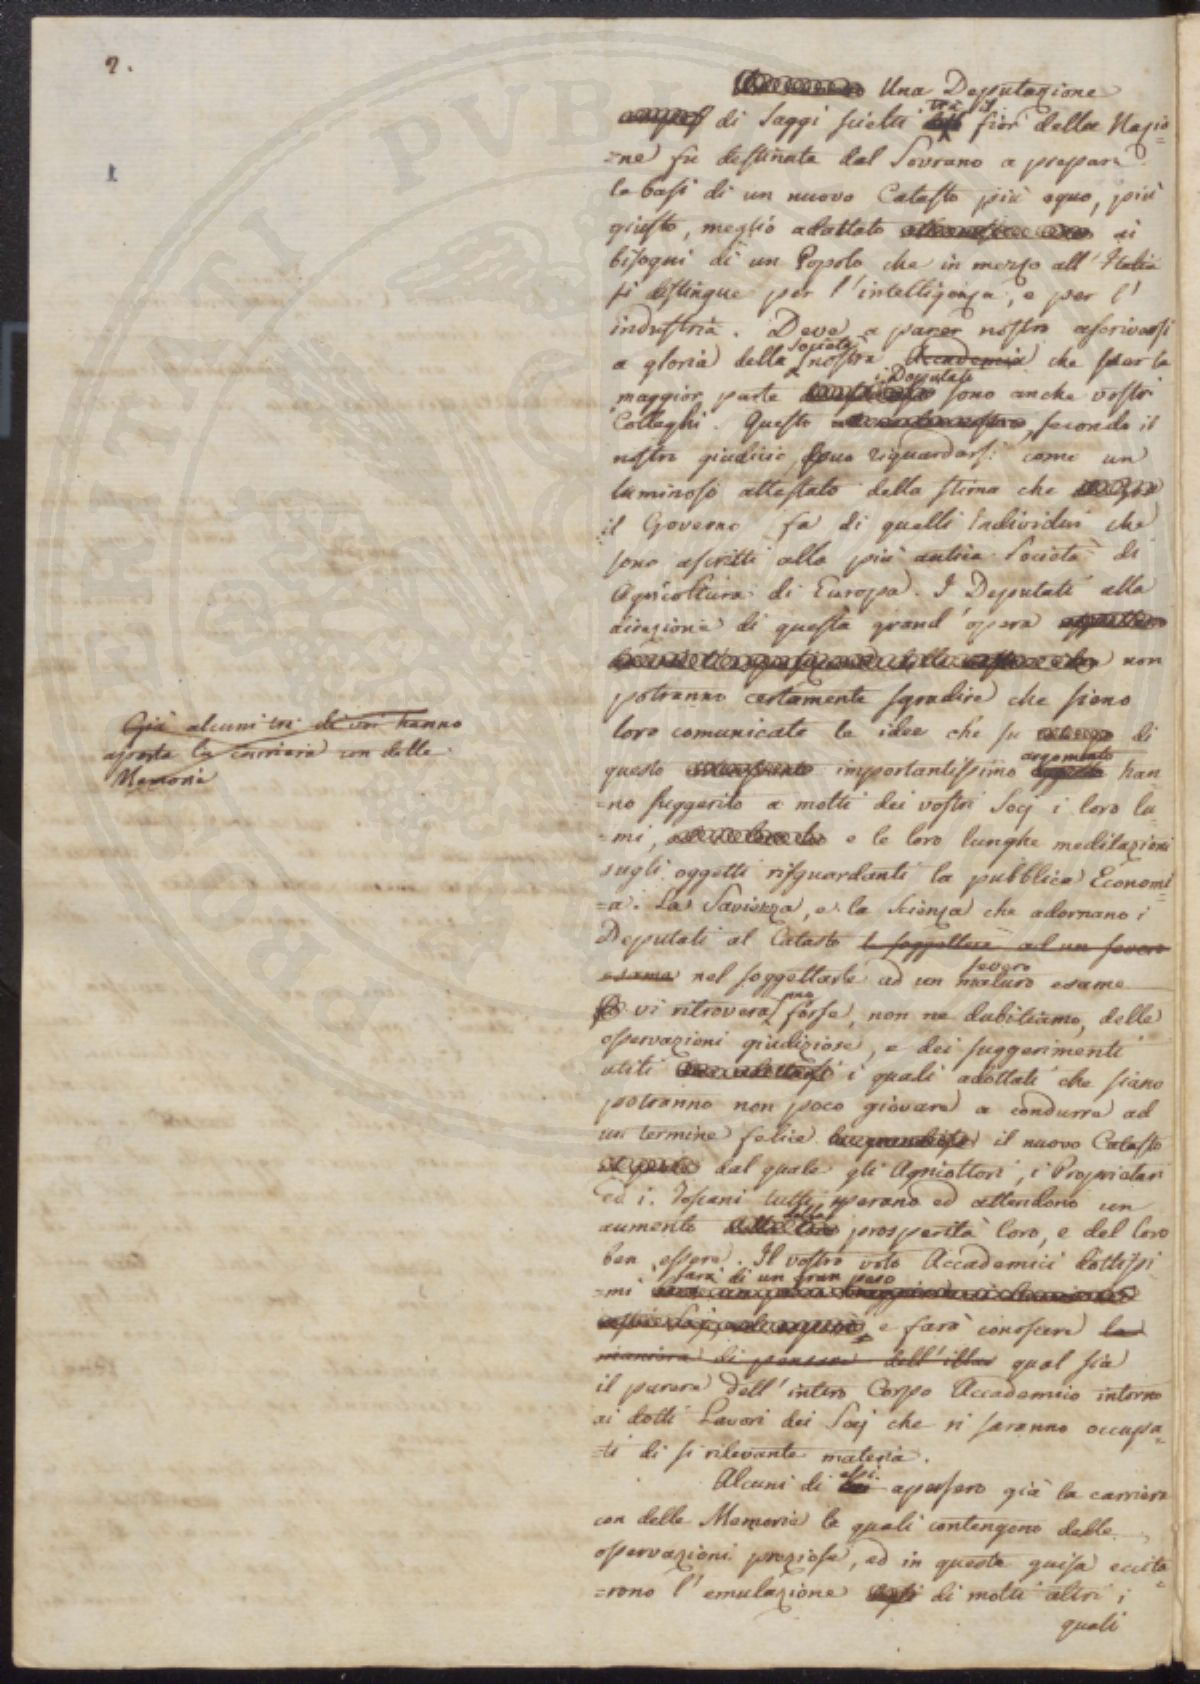 2.
1
Una Deputazione
di Saggi scielti tra i fior della Nazio
=ne fu destinata dal Sovrano a preparar
le basi di un nuovo Catasto più equo, più
giusto, meglio adattato ai
bisogni di un Popolo che in mezzo all'Italia
si distingue per l'intelligenza, e per l'
industria. Deve a parer nostro ascriversi
a gloria della Società nostra Accademia che per la
maggior parte i Deputati sono anche vostri
Colleghi. Questo secondo il
nostro giudizio, può riguardarsi come un
luminoso attestato della stima che
il Governo fa di quelli Individui che
sono ascritti alla più antica Società di
Agricoltura di Europa. I Deputati alla
direzione di questa grand'opera
non
potranno certamente sgradire che siano
Già alcuni tra di voi hanno
aperta la carriera con delle
Memorie
loro comunicate le idee che su di
questo importantissimo argomento oggetto han
=no suggerito a molti dei vostri Socj i loro lu-
=mi, e le loro lunghe meditazioni
sugli oggetti risguardanti la pubblica Economi
=a. La Saviezza, e la Scienza che adornano i
Deputati al Catasto le soggetterà ad un severo
esame nel soggettarle ad un severo maturo esame
vi ritroverà forse, non ne dubitiamo, delle
osservazioni giudiziose, e dei suggerimenti
utili i quali adottati che siano
potranno non poco giovare a condurre ad
un termine felice il nuovo Catasto
dal quale gli Agricoltori, i Proprietari
ed i Toscani tutti sperano ed attendono un
aumento della prosperità loro, e del loro
ben essere. Il vostro voto Accademici dottissi
=mi sarà di un gran peso
e farà conoscere la
maniera di pensare dell'illus qual sia
il parere dell'intero Corpo Accademico intorno
ai dotti Lavori dei Socj che si saranno occupa=
=ti di sì rilevante materia.
Alcuni di essi apersero già la carriera
con delle Memorie le quali contengono delle
osservazioni preziose, ed in questa guisa eccita=
=rono l'emulazione di molti altri i
quali